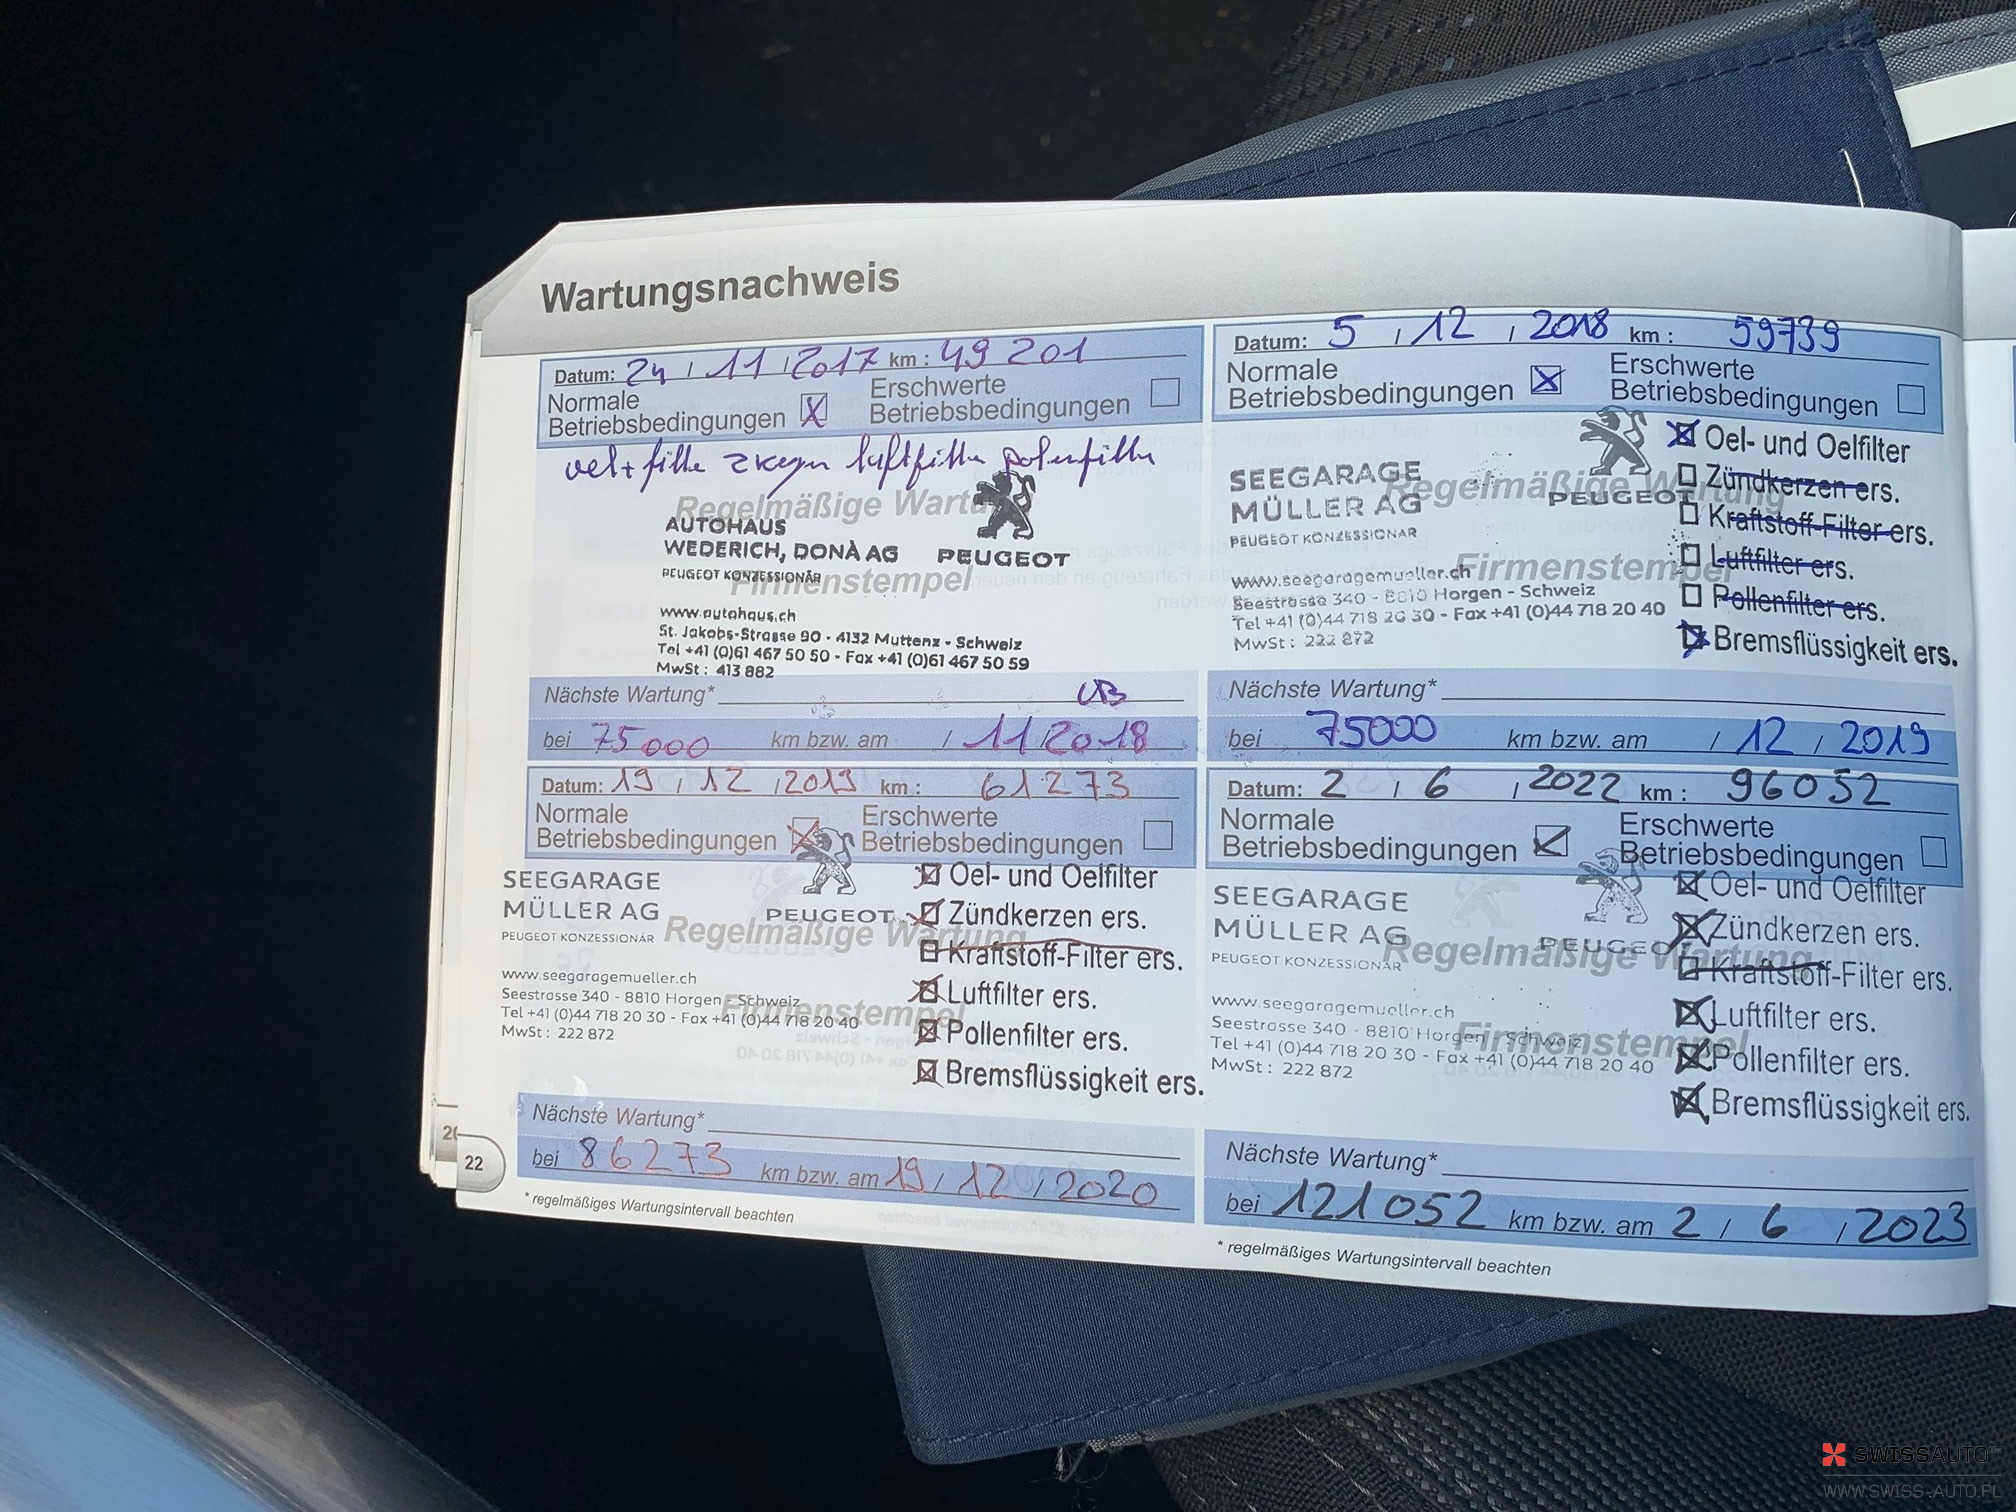 Wartungsnachweis
Datum: 24 / 11 / 2017 km : 49 201
Normale
Betriebsbedingungen X
Erschwerte
Betriebsbedingungen
oel + filter zkerzen luftfilter polenfilter
Regelmäßige Wartung
AUTOHAUS
WEDERICH, DONÀ AG
PEUGEOT
PEUGEOT KONZESSIONÄR
Firmenstempel
www.autohaus.ch
St. Jakobs-Strasse 90 - 4132 Muttenz - Schweiz
Tel +41 (0)61 467 50 50 - Fax +41 (0)61 467 50 59
MwSt : 413 882
Nächste Wartung*
bei 75000 km bzw. am / 11 / 2018
Datum: 5 / 12 / 2018 km : 59739
Normale
Betriebsbedingungen X
Erschwerte
Betriebsbedingungen
Oel- und Oelfilter
SEEGARAGE
MÜLLER AG
Regelmäßige Wartung
PEUGEOT
PEUGEOT KONZESSIONÄR
Zündkerzen ers.
Kraftstoff-Filter ers.
Luftfilter ers.
Pollenfilter ers.
Bremsflüssigkeit ers.
Firmenstempel
www.seegaragemueller.ch
Seestrasse 340 - 8810 Horgen - Schweiz
Tel +41 (0)44 718 20 30 - Fax +41 (0)44 718 20 40
MwSt : 222 872
Nächste Wartung*
bei 75000 km bzw. am / 12 / 2019
Datum: 19 / 12 / 2019 km : 61273
Normale
Betriebsbedingungen X
Erschwerte
Betriebsbedingungen
SEEGARAGE
MÜLLER AG
PEUGEOT
PEUGEOT KONZESSIONÄR
Regelmäßige Wartung
Oel- und Oelfilter
Zündkerzen ers.
Kraftstoff-Filter ers.
Luftfilter ers.
Pollenfilter ers.
Bremsflüssigkeit ers.
www.seegaragemueller.ch
Seestrasse 340 - 8810 Horgen - Schweiz
Firmenstempel
Tel +41 (0)44 718 20 30 - Fax +41 (0)44 718 20 40
MwSt : 222 872
Nächste Wartung*
bei 86273 km bzw. am 19 / 12 / 2020
* regelmäßiges Wartungsintervall beachten
Datum: 2 / 6 / 2022 km : 96052
Normale
Betriebsbedingungen
Erschwerte
Betriebsbedingungen
SEEGARAGE
MÜLLER AG
PEUGEOT
PEUGEOT KONZESSIONÄR
Regelmäßige Wartung
Oel- und Oelfilter
Zündkerzen ers.
Kraftstoff-Filter ers.
Luftfilter ers.
Pollenfilter ers.
Bremsflüssigkeit ers.
www.seegaragemueller.ch
Seestrasse 340 - 8810 Horgen - Schweiz
Firmenstempel
Tel +41 (0)44 718 20 30 - Fax +41 (0)44 718 20 40
MwSt : 222 872
Nächste Wartung*
bei 121052 km bzw. am 2 / 6 / 2023
* regelmäßiges Wartungsintervall beachten
22
SWISSAUTO
WWW.SWISS-AUTO.PL